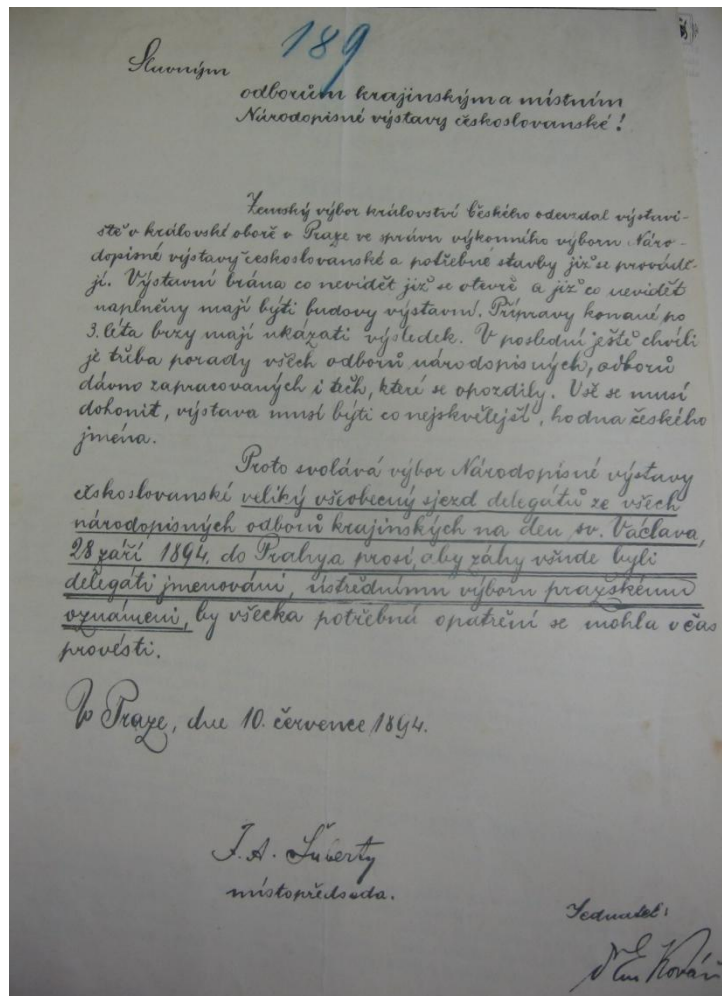 189
Slavným
odborům krajinským a místním
Národopisné výstavy českoslovanské!
Zemský výbor království Českého odevzdal výstavi-
ště v královské oboře v Praze ve správu výkonného výboru Náro-
dopisné výstavy českoslovanské a potřebné stavby již se provádě-
jí. Výstavní brána co nevidět již se otevře a již co nevidět
naplněny mají býti budovy výstavní. Přípravy konané po
3. léta brzy mají ukázati výsledek. V poslední ještě chvíli
je třeba porady všech odborů národopisných, odborů
dávno zapracovaných i těch, které se opozdily. Vše se musí
dohonit, výstava musí býti co nejskvělejší, hodna českého
jména.
Proto svolává výbor Národopisné výstavy
českoslovanské veliký všeobecný sjezd delegátů ze všech
národopisných odborů krajinských na den sv. Václava,
28 září 1894. do Prahy a prosí, aby záhy všude byli
delegáti jmenováni, ústřednímu výboru pražskému
oznámeni, by všecka potřebná opatření se mohla v čas
provésti.
V Praze, dne 10. července 1894.
F. A. Šuberty
místopředseda.
Jednatel:
Kovář